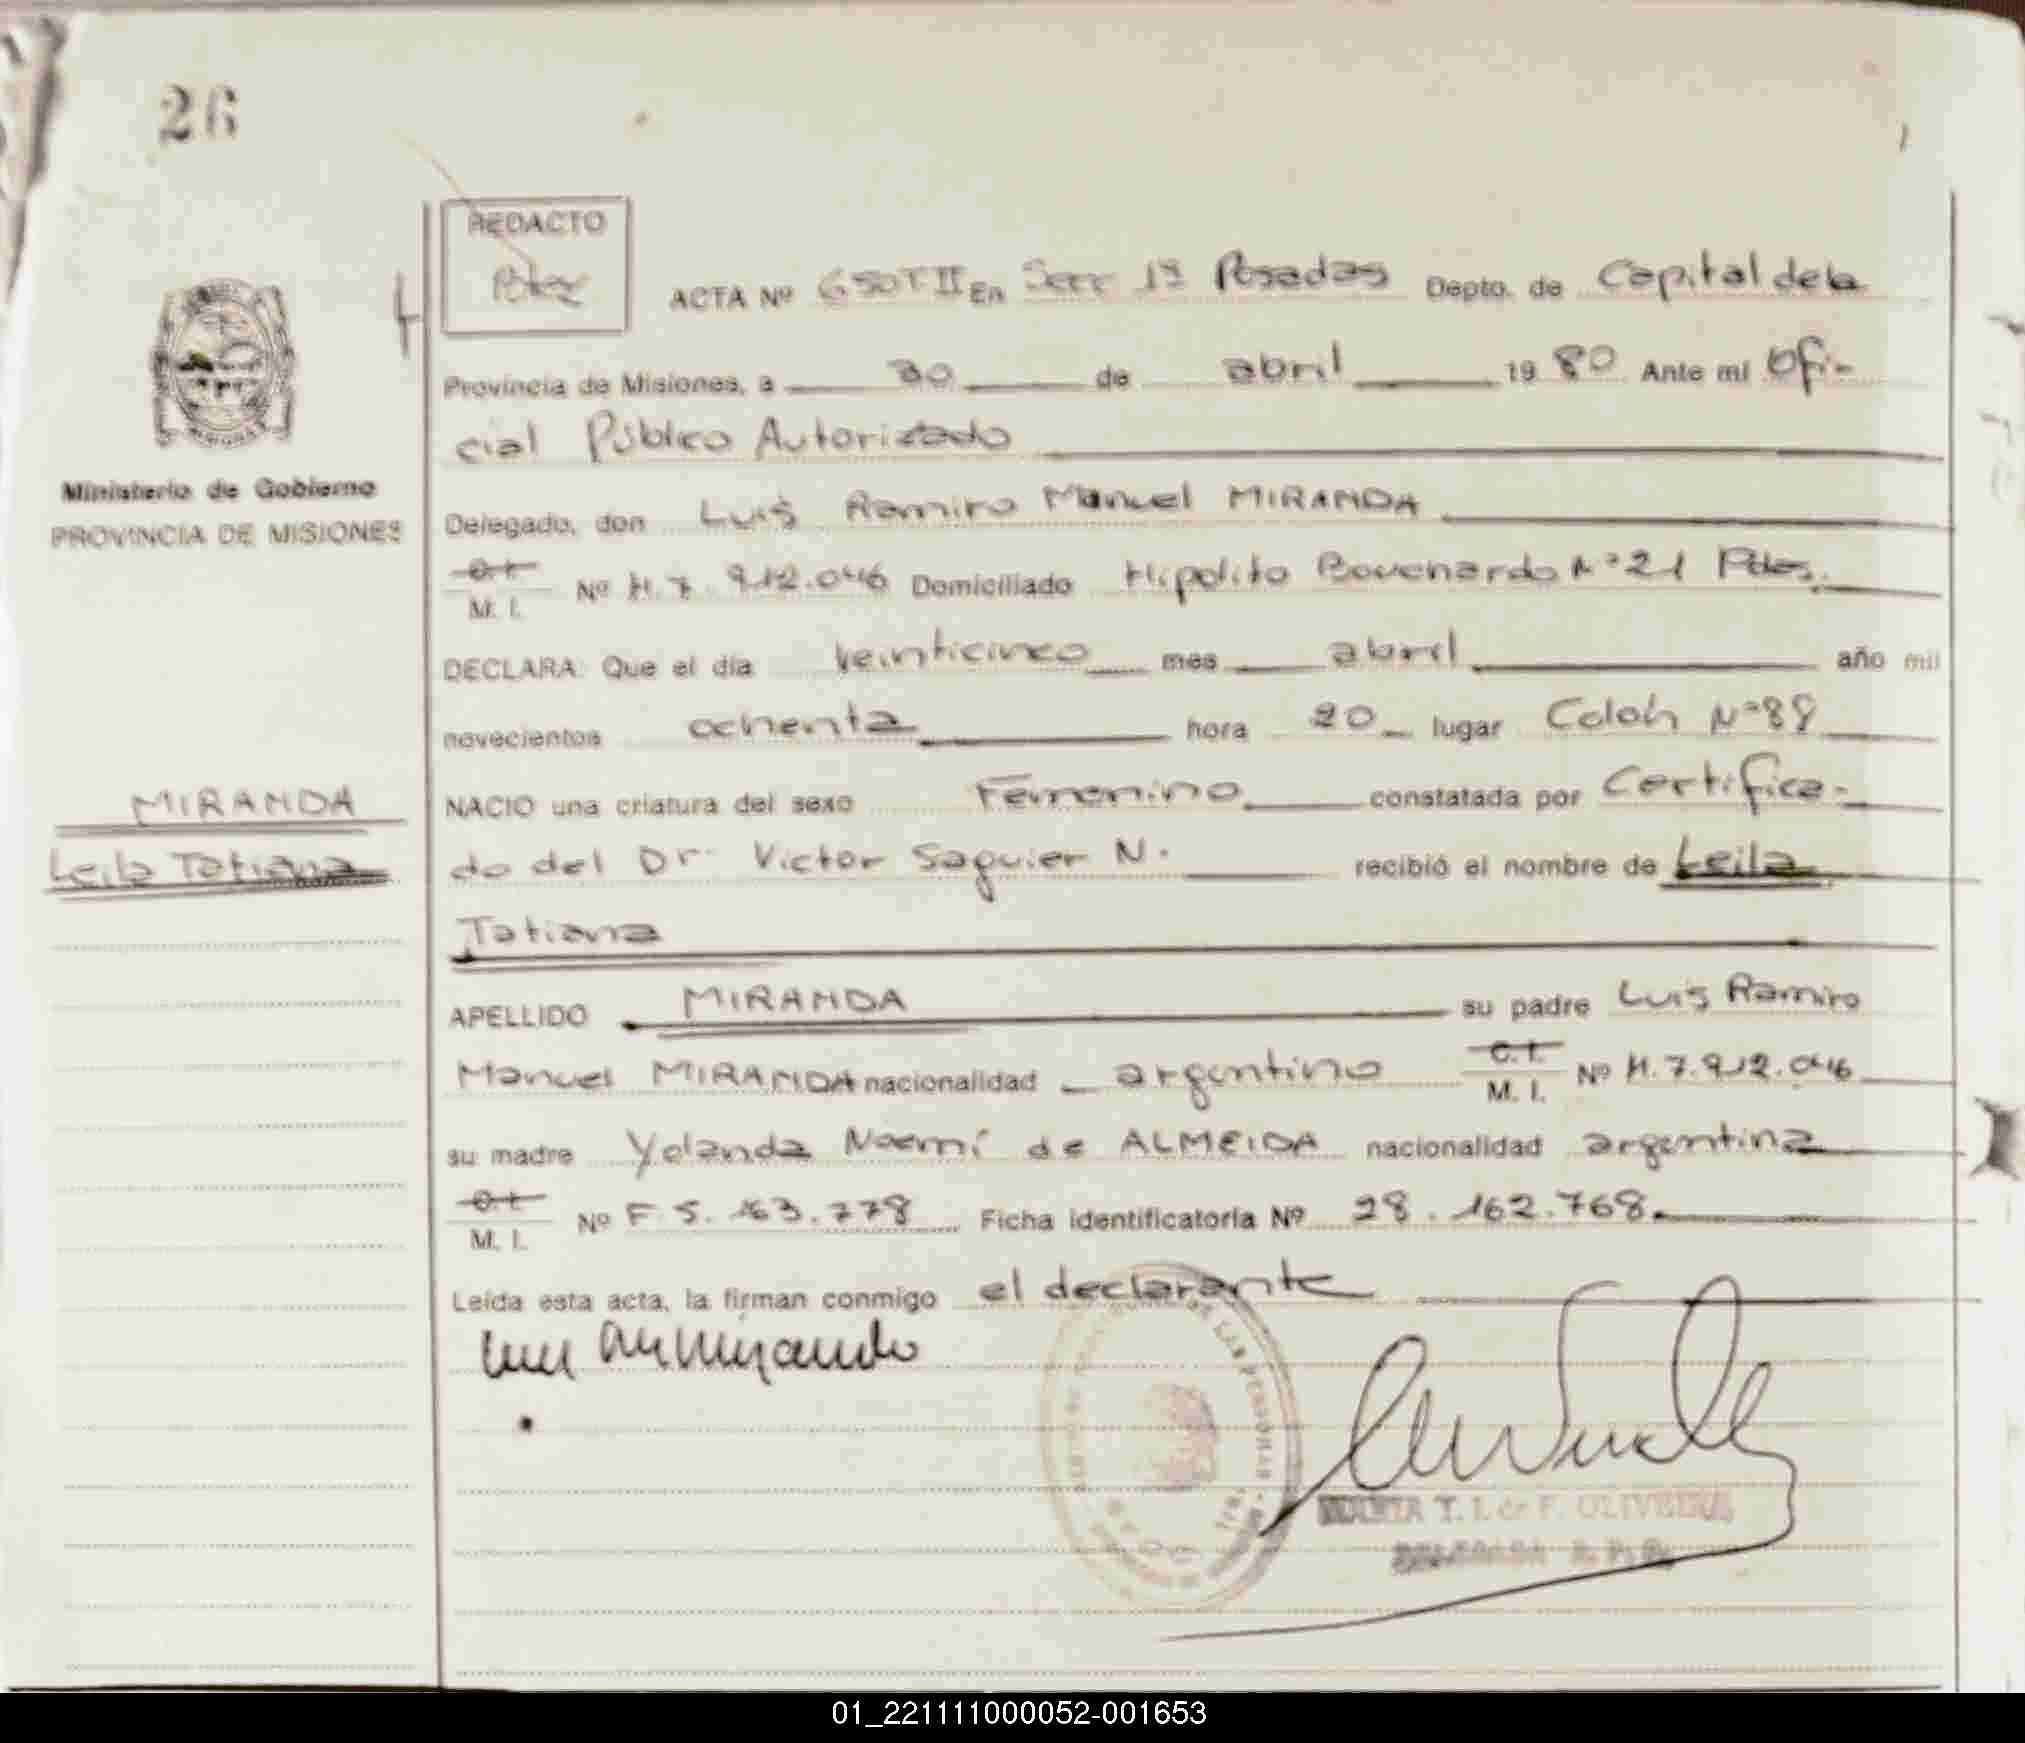 26
REDACTO
ACTA Nº 650 T II En Secc 1ª Posadas Depto. de Capital de la
Provincia de Misiones, a 30 de abril 1980 Ante mí Ofi-
cial Público Autorizado
Ministerio de Gobierno
PROVINCIA DE MISIONES
Delegado, don Luis Ramiro Manuel MIRANDA
C.I.
M. I. Nº M. 7.912.046 Domiciliado Hipolito Bouchardo Nº 21 Pdas.
DECLARA: Que el día veinticinco mes abril año mil
novecientos ochenta hora 20 lugar Colón Nº 89
MIRANDA
Leila Tatiana
NACIO una criatura del sexo Femenino constatada por Certifica-
do del Dr. Victor Saguier N. recibió el nombre de Leila
Tatiana
APELLIDO MIRANDA su padre Luis Ramiro
Manuel MIRANDA nacionalidad argentino C.I.
M. I. Nº M. 7.912.046
su madre Yolanda Noemí de ALMEIDA nacionalidad argentina
C.I.
M. I. Nº F 5.163.778 Ficha identificatoria Nº 28.162.768.
Leída esta acta, la firman conmigo el declarante
T. I. de F. OLIVEIRA
01_221111000052-001653